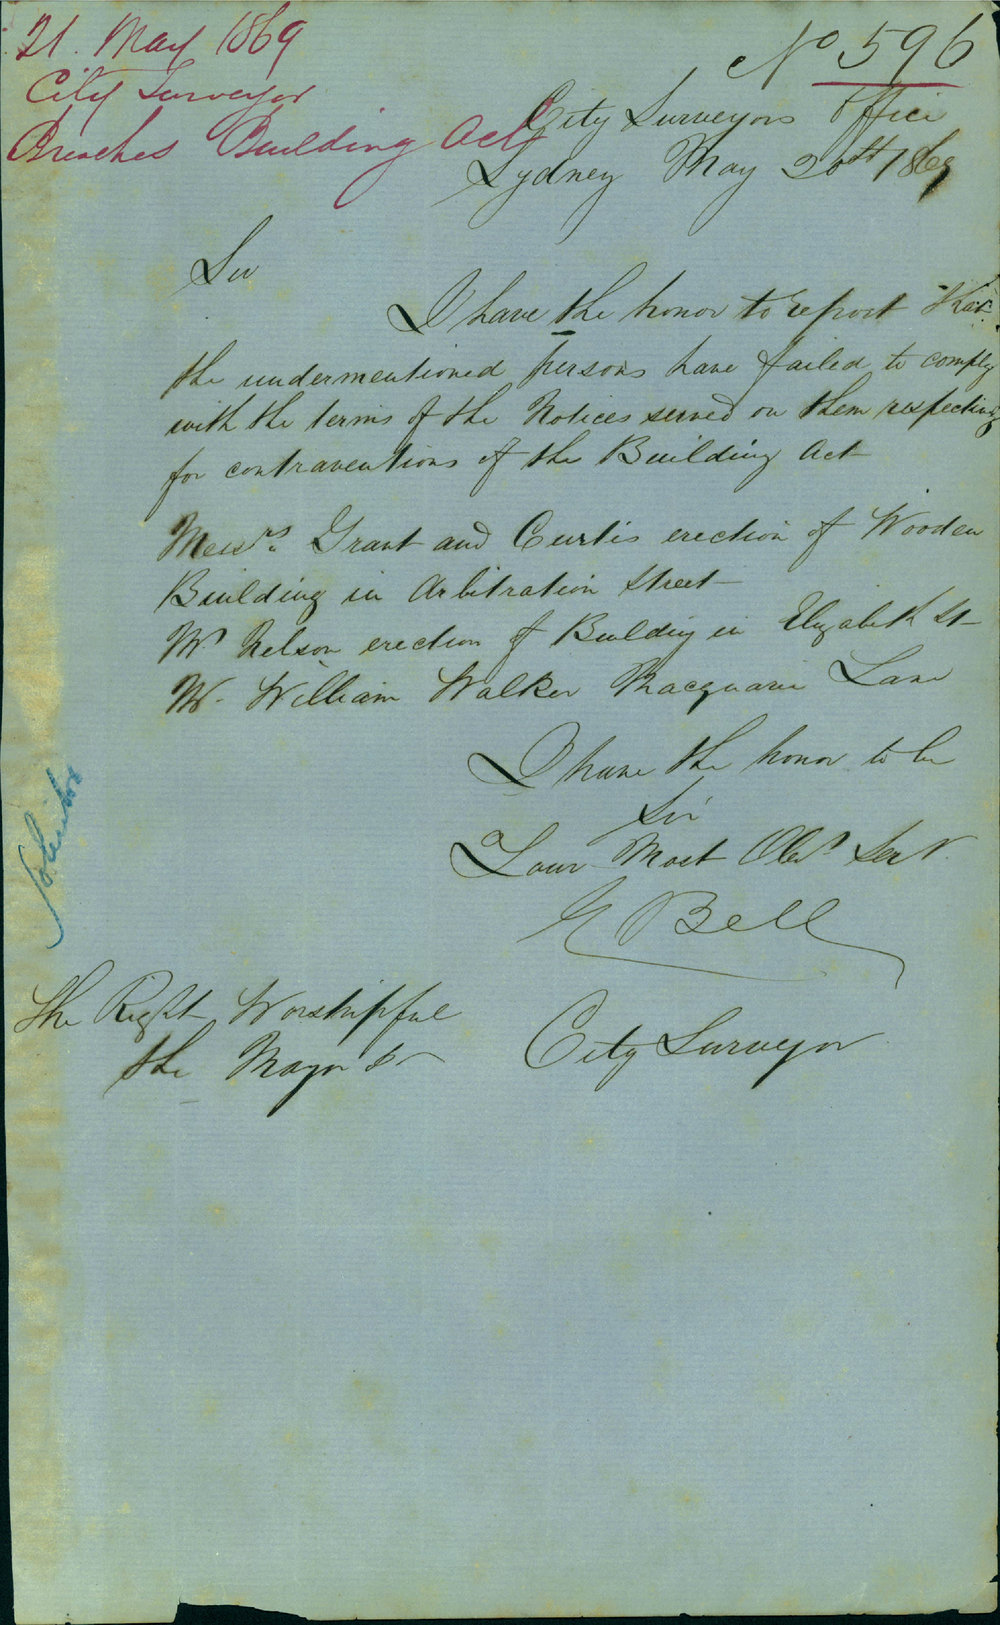 21. May 1869
City Surveyor
Breaches Building Act
No 596
City Surveyors Office
Sydney May 20th 1869
Sir
I have the honor to report that
the undermentioned persons have failed to comply
with the terms of the Notices served on them respecting
for contraventions of the Building Act
Messrs. Grant and Curtis erection of Wooden
Building in Arbitration Street
Mr Nelson erection of Building in Elizabeth St
Mr. William Walker Macquarie Lane
I have the honor to be
Sir
Your Most Obt Servt.
E Bell
City Surveyor
The Right Worshipful
the Mayor &c
Solicitor